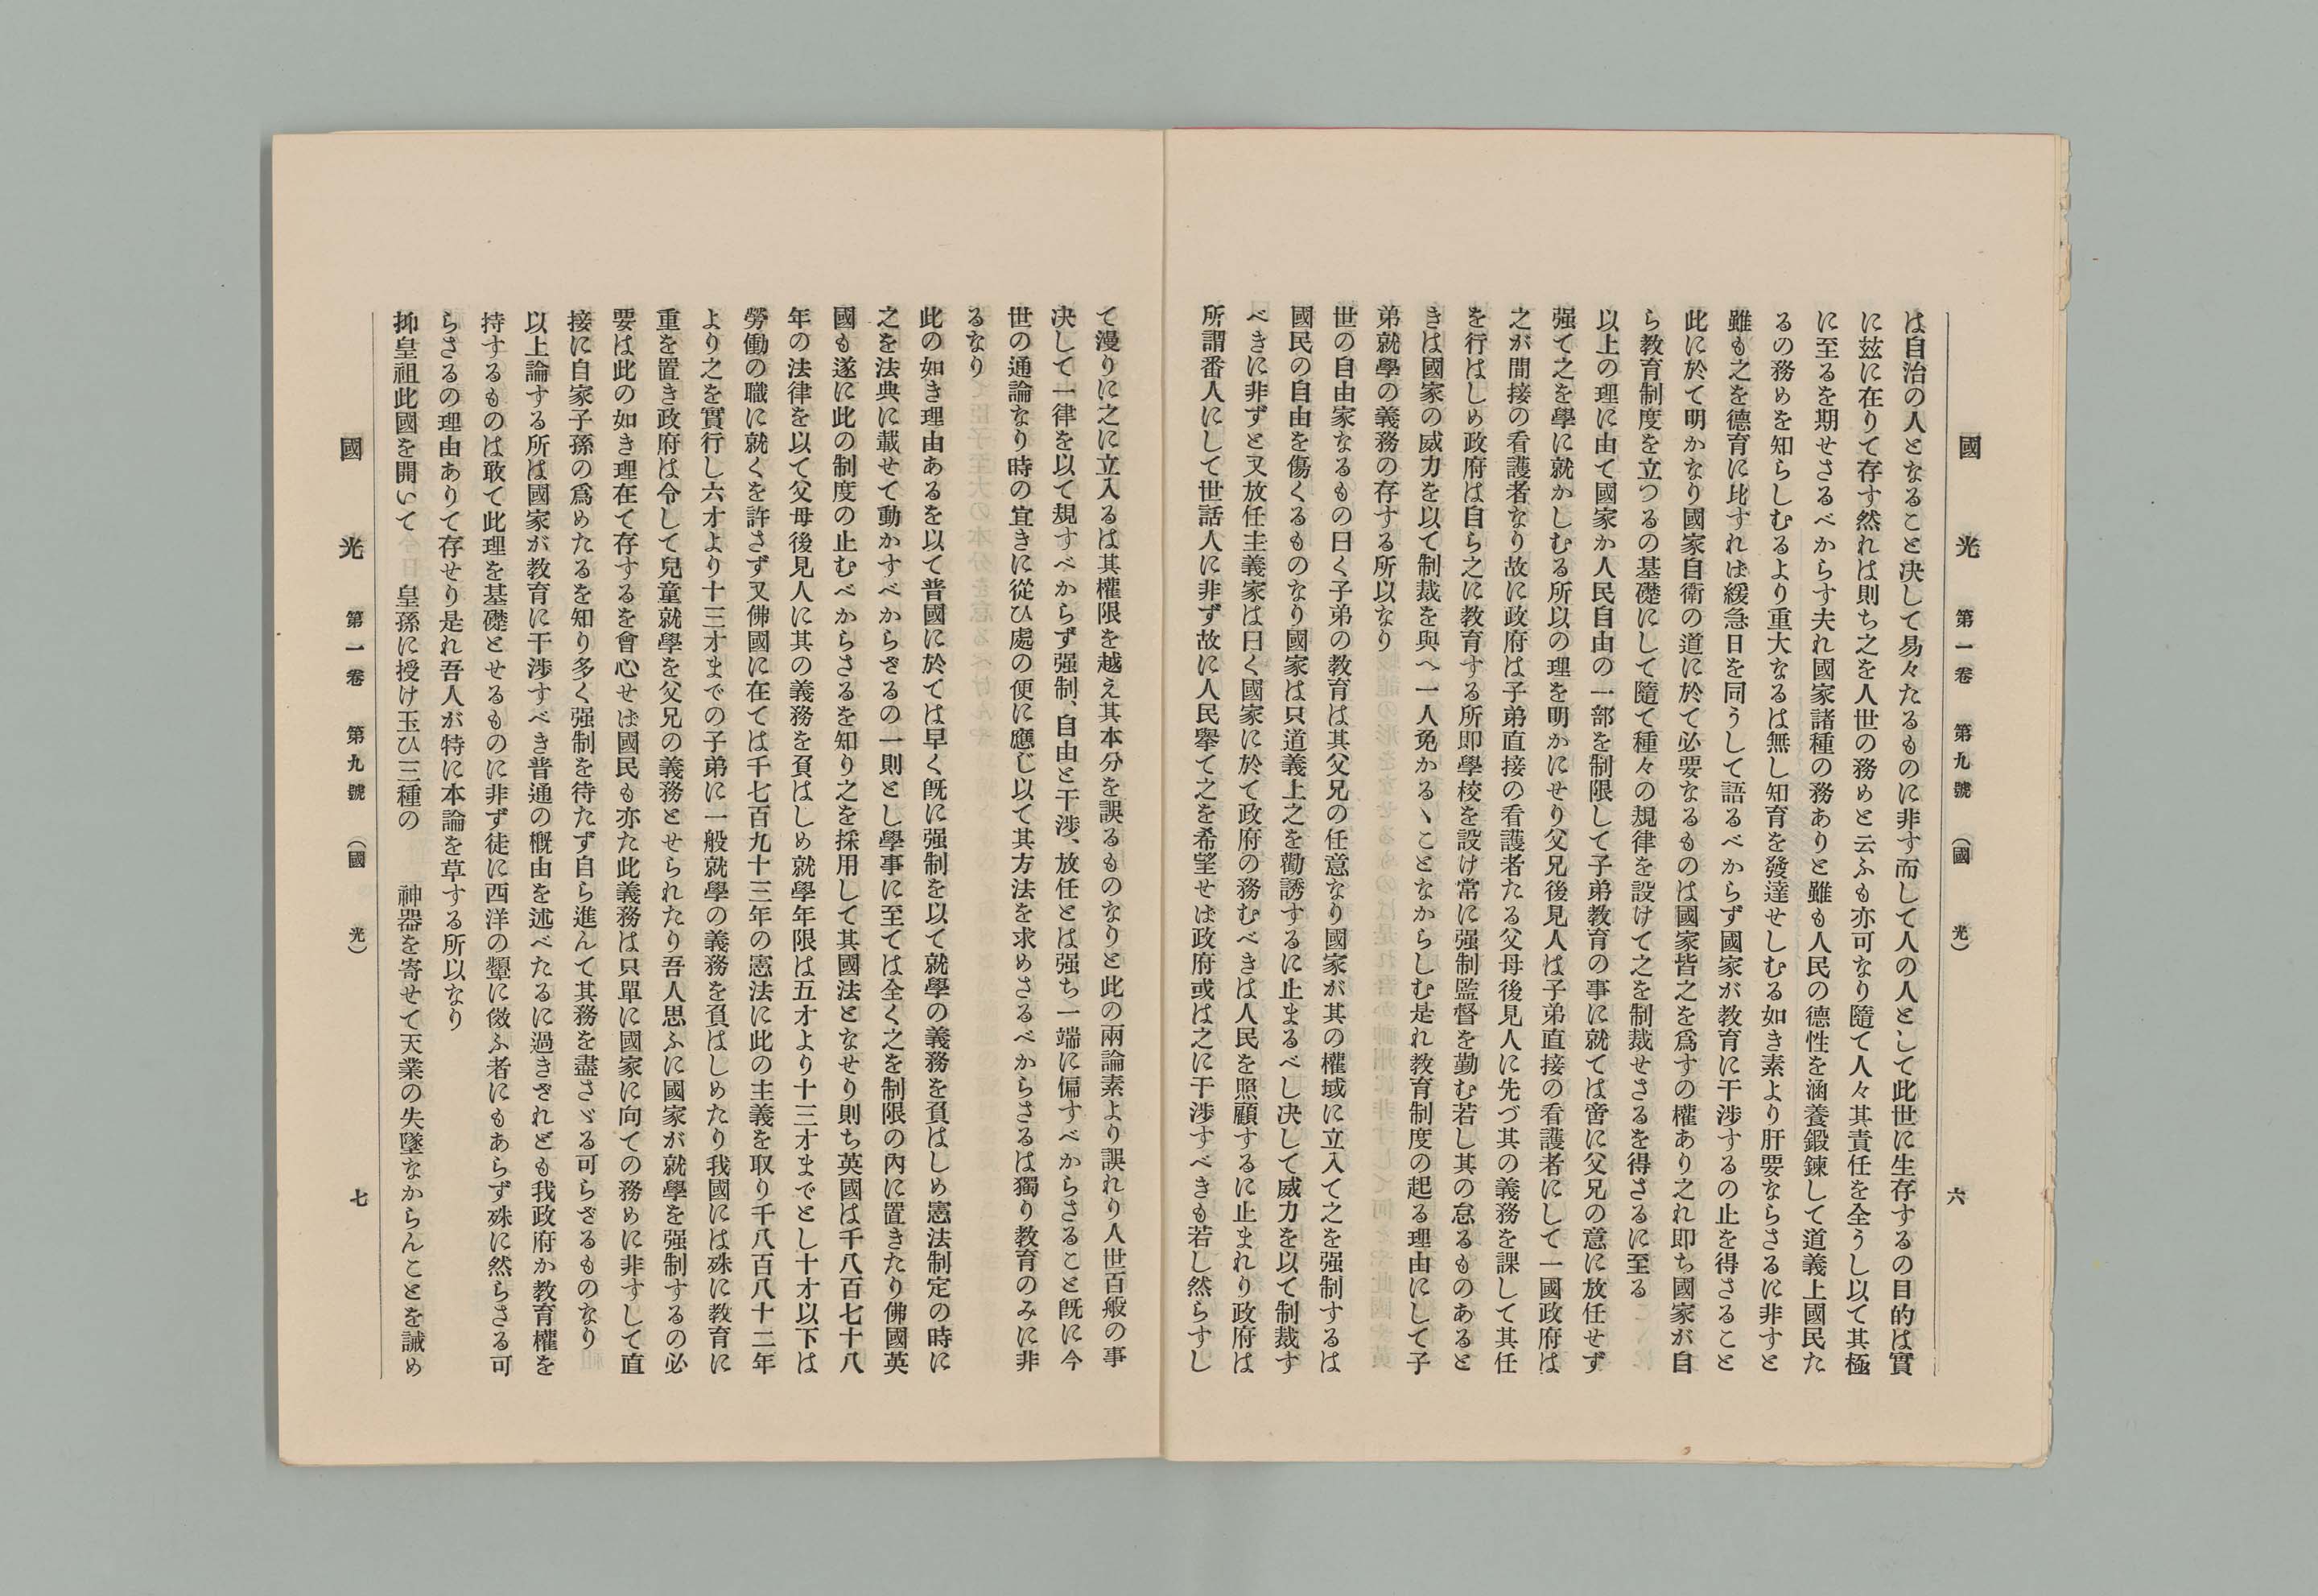 國光　第一卷　第九號　（國光）　六
は自治の人となること決して易々たるものに非す而して人の人として此世に生存するの目的は實
に玆に在りて存す然れは則ち之を人世の務めと云ふも亦可なり隨て人々其責任を全うし以て其極
に至るを期せさるべからす夫れ國家諸種の務ありと雖も人民の德性を涵養鍛鍊して道義上國民た
るの務めを知らしむるより重大なるは無し知育を發達せしむる如き素より肝要ならさるに非すと
雖も之を德育に比すれは緩急日を同うして語るべからず國家が教育に干渉するの止を得さること
此に於て明かなり國家自衛の道に於て必要なるものは國家皆之を爲すの權あり之れ即ち國家が自
ら教育制度を立つるの基礎にして隨て種々の規律を設けて之を制裁せさるを得さるに至る
以上の理に由て國家か人民自由の一部を制限して子弟教育の事に就ては啻に父兄の意に放任せず
强て之を學に就かしむる所以の理を明かにせり父兄後見人は子弟直接の看護者にして一國政府は
之が間接の看護者なり故に政府は子弟直接の看護者たる父母後見人に先づ其の義務を課して其任
を行はしめ政府は自ら之に教育する所即學校を設け常に强制監督を勤む若し其の怠るものあると
きは國家の威力を以て制裁を與へ一人免かるゝことなからしむ是れ教育制度の起る理由にして子
弟就學の義務の存する所以なり
世の自由家なるもの曰く子弟の教育は其父兄の任意なり國家が其の權域に立入て之を强制するは
國民の自由を傷くるものなり國家は只道義上之を勸誘するに止まるべし决して威力を以て制裁す
べきに非ずと又放任主義家は曰く國家に於て政府の務むべきは人民を照顧するに止まれり政府は
所謂番人にして世話人に非ず故に人民擧て之を希望せは政府或は之に干渉すべきも若し然らすし
て漫りに之に立入るは其權限を越え其本分を誤るものなりと此の兩論素より誤れり人世百般の事
决して一律を以て規すべからず强制、自由と干渉、放任とは强ち一端に偏すべからさること既に今
世の通論なり時の宜きに從ひ處の便に應じ以て其方法を求めさるべからさるは獨り教育のみに非
るなり
此の如き理由あるを以て普國に於ては早く既に强制を以て就學の義務を負はしめ憲法制定の時に
之を法典に載せて動かすべからざるの一則とし學事に至ては全く之を制限の內に置きたり佛國英
國も遂に此の制度の止むべからさるを知り之を採用して其國法となせり則ち英國は千八百七十八
年の法律を以て父母後見人に其の義務を負はしめ就學年限は五才より十三才までとし十才以下は
勞働の職に就くを許さず又佛國に在ては千七百九十三年の憲法に此の主義を取り千八百八十二年
より之を實行し六才より十三才までの子弟に一般就學の義務を負はしめたり我國には殊に教育に
重を置き政府は令して兒童就學を父兄の義務とせられたり吾人思ふに國家が就學を强制するの必
要は此の如き理在て存するを會心せは國民も亦た此義務は只單に國家に向ての務めに非すして直
接に自家子孫の爲めたるを知り多く强制を待たず自ら進んて其務を盡さゞる可らざるものなり
以上論する所は國家が教育に干渉すべき普通の概由を述べたるに過きざれども我政府か教育權を
持するものは敢て此理を基礎とせるものに非ず徒に西洋の顰に傚ふ者にもあらず殊に然らさる可
らさるの理由ありて存せり是れ吾人が特に本論を草する所以なり
抑皇祖此國を開いて　皇孫に授け玉ひ三種の　神器を寄せて天業の失墜なからんことを誡め
國光　第一卷　第九號　（國光）　七